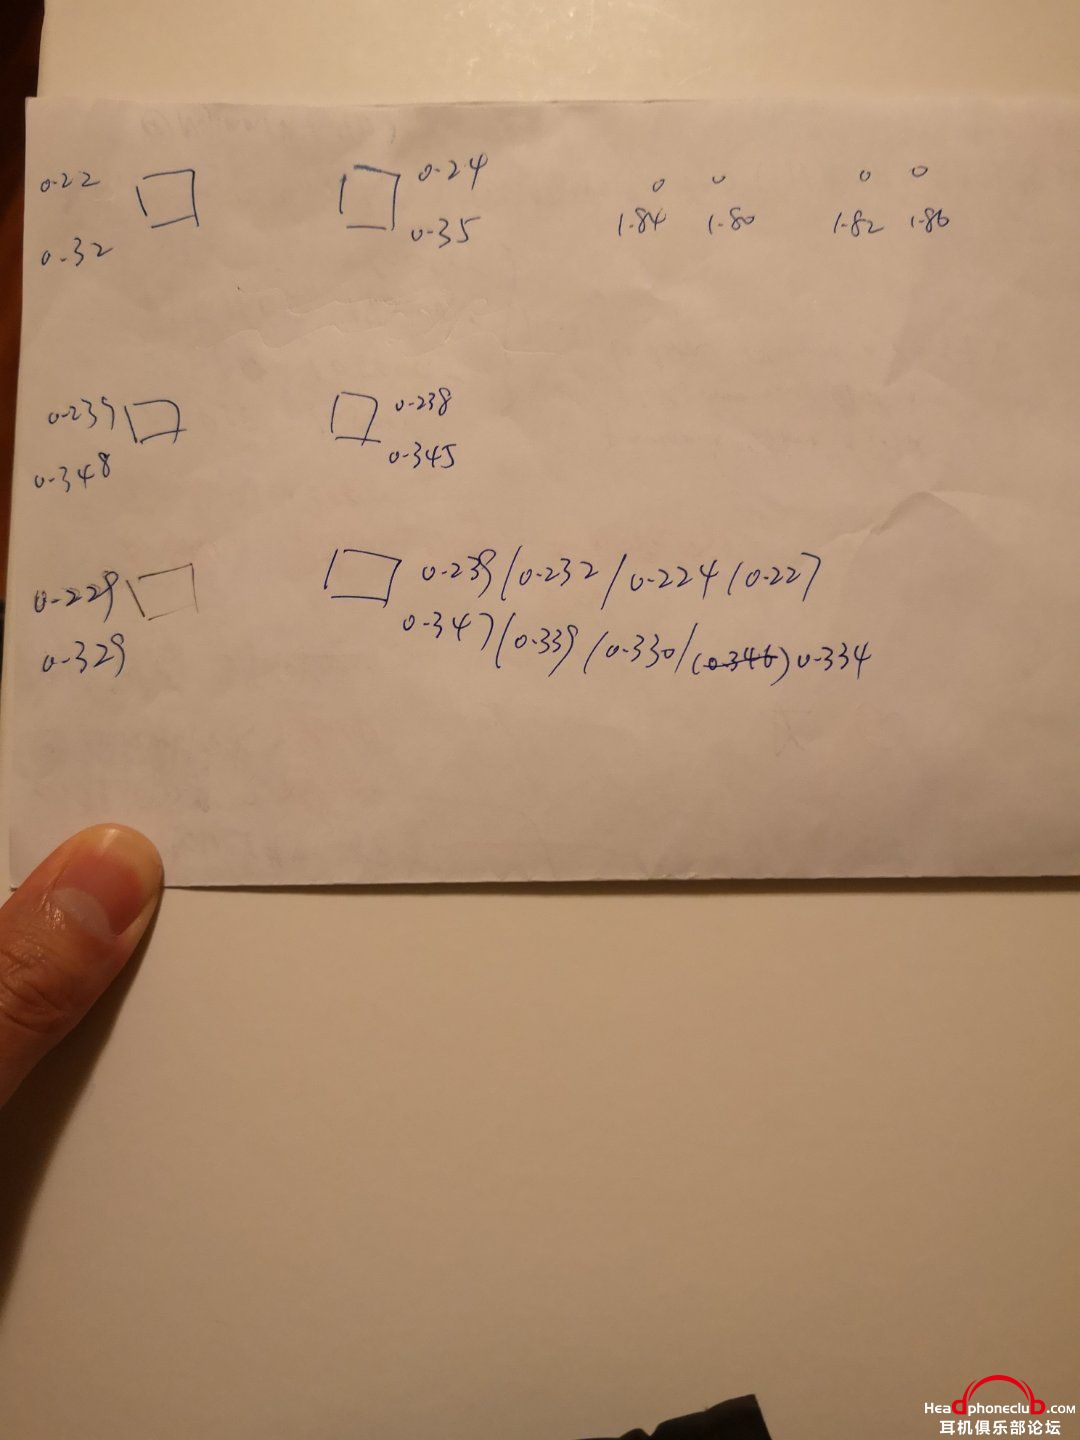 0.22 0.24 0 0 0 0
0.32 0.35 1.84 1.80 1.82 1.86
0.239 0.238
0.348 0.345
0.229 0.239/0.232/0.224/0.227
0.329 0.347/0.339/0.330/(0.346)0.334
HeadphoneclubD.COM
耳机俱乐部论坛